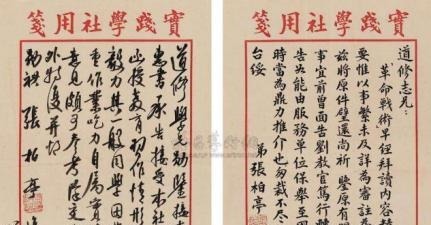 實踐學社用箋
道修學勛鑒接
惠書承告接受本社
函授教育初作情形
毅力與一般同學因
重作業吃力自屬實
意見頗可參考除交
外特复並頌
勛祺 張柏亭
實踐學社用箋
道修志兄：
革命戰術早經拜讀內容
要惟以事繁未及詳為審註
茲將原件璧還尚祈 鑒原有
事宜前曾面告劉教官篤行
告如能由服務單位保舉至
時當為鼎力推介也匆裁不尽
台綏
弟張柏亭